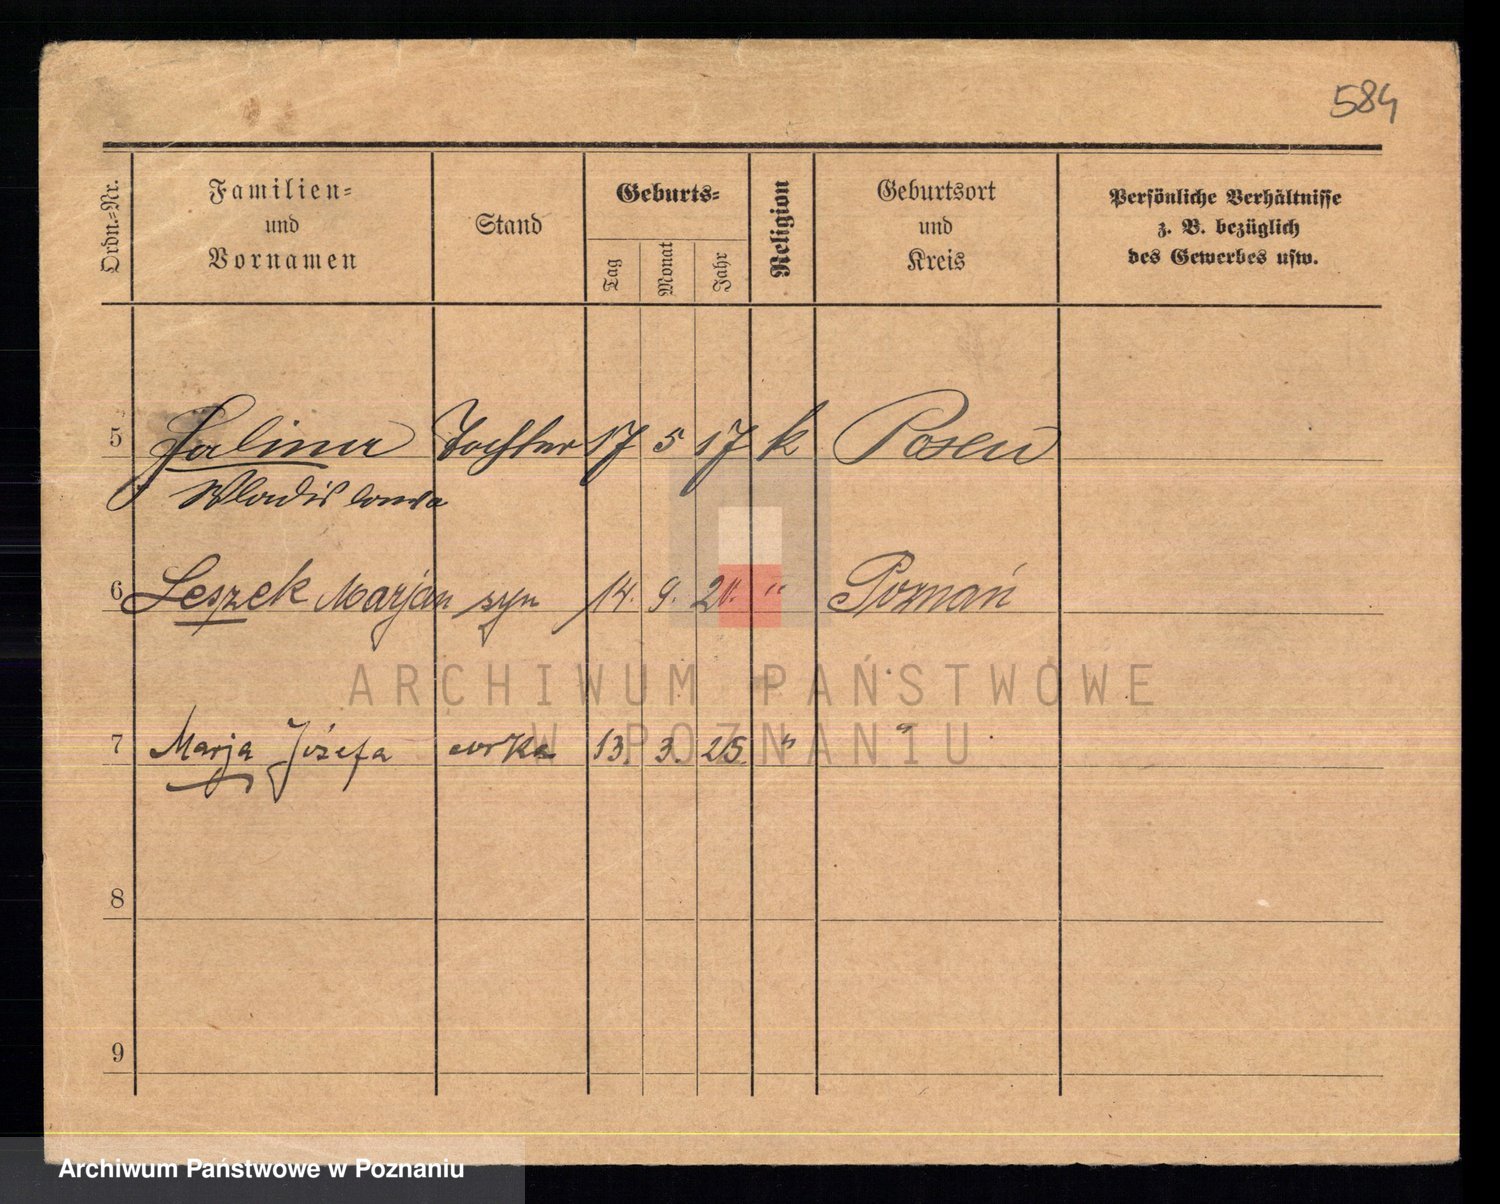 584
Ordn.=Nr.
Familien=
und
Vornamen
Stand
Geburts=
Tag
Monat
Jahr
Religion
Geburtsort
und
Kreis
Persönliche Verhältnisse
z. B. bezüglich
des Gewerbes usw.
5 Halina Tochter 17 5 17 k Posen
Wladislawa
6 Leszek Marjan syn 14. 9. " Poznań
7 Marja Józefa corka 13. 3. 25. " "
8
9
ARCHIWUM PAŃSTWOWE
W POZNANIU
Archiwum Państwowe w Poznaniu